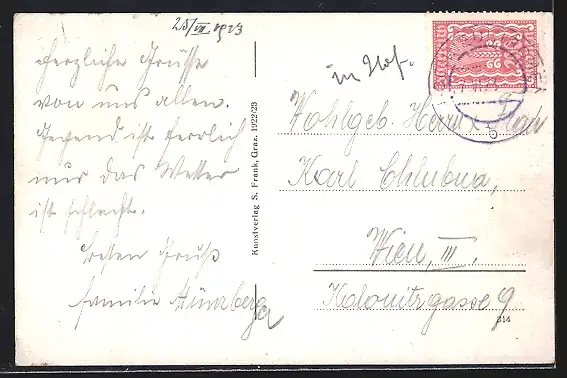 25/VII 1923
Herzliche Grüsse
von uns allen.
Gegend ist herrlich
nur das Wetter
ist schlecht.
Besten Gruß
Familie Münzberger
Kunstverlag S. Frank, Graz. 1922/23
in Hof.
Wohlgeb. Herrn
Karl Chlubna,
Wien, III.
Kolonitzgasse 9
314